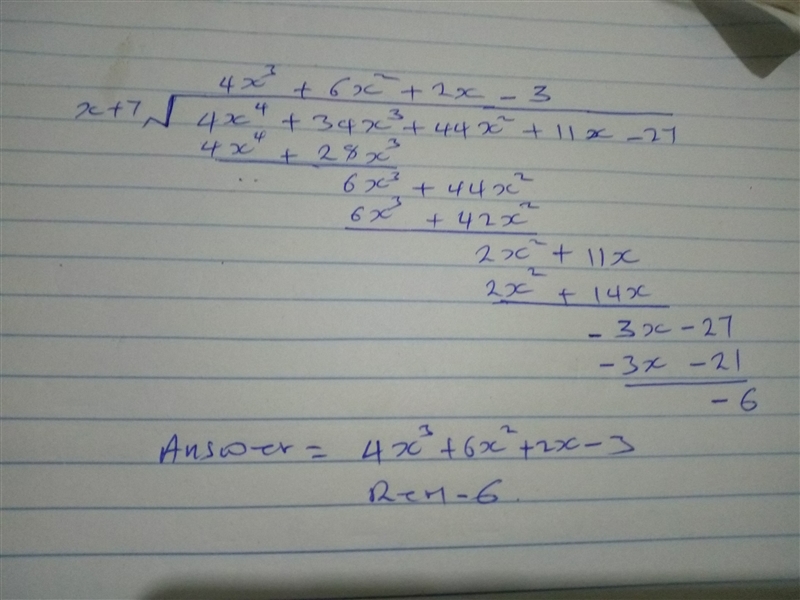 4x³ + 6x² + 2x - 3
x+7 √ 4x⁴ + 34x³ + 44x² + 11x - 27
4x⁴ + 28x³
6x³ + 44x²
6x³ + 42x²
2x² + 11x
2x² + 14x
- 3x - 27
- 3x - 21
- 6
Answer = 4x³ + 6x² + 2x - 3
Rem - 6.